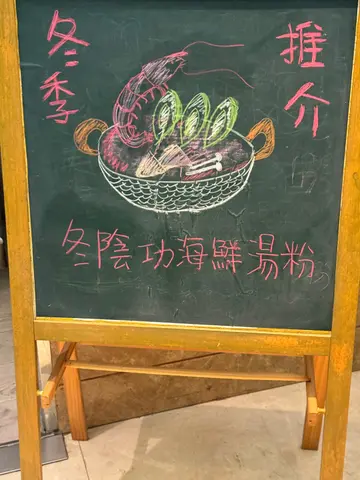 冬季
推介
冬陰功海鮮湯粉